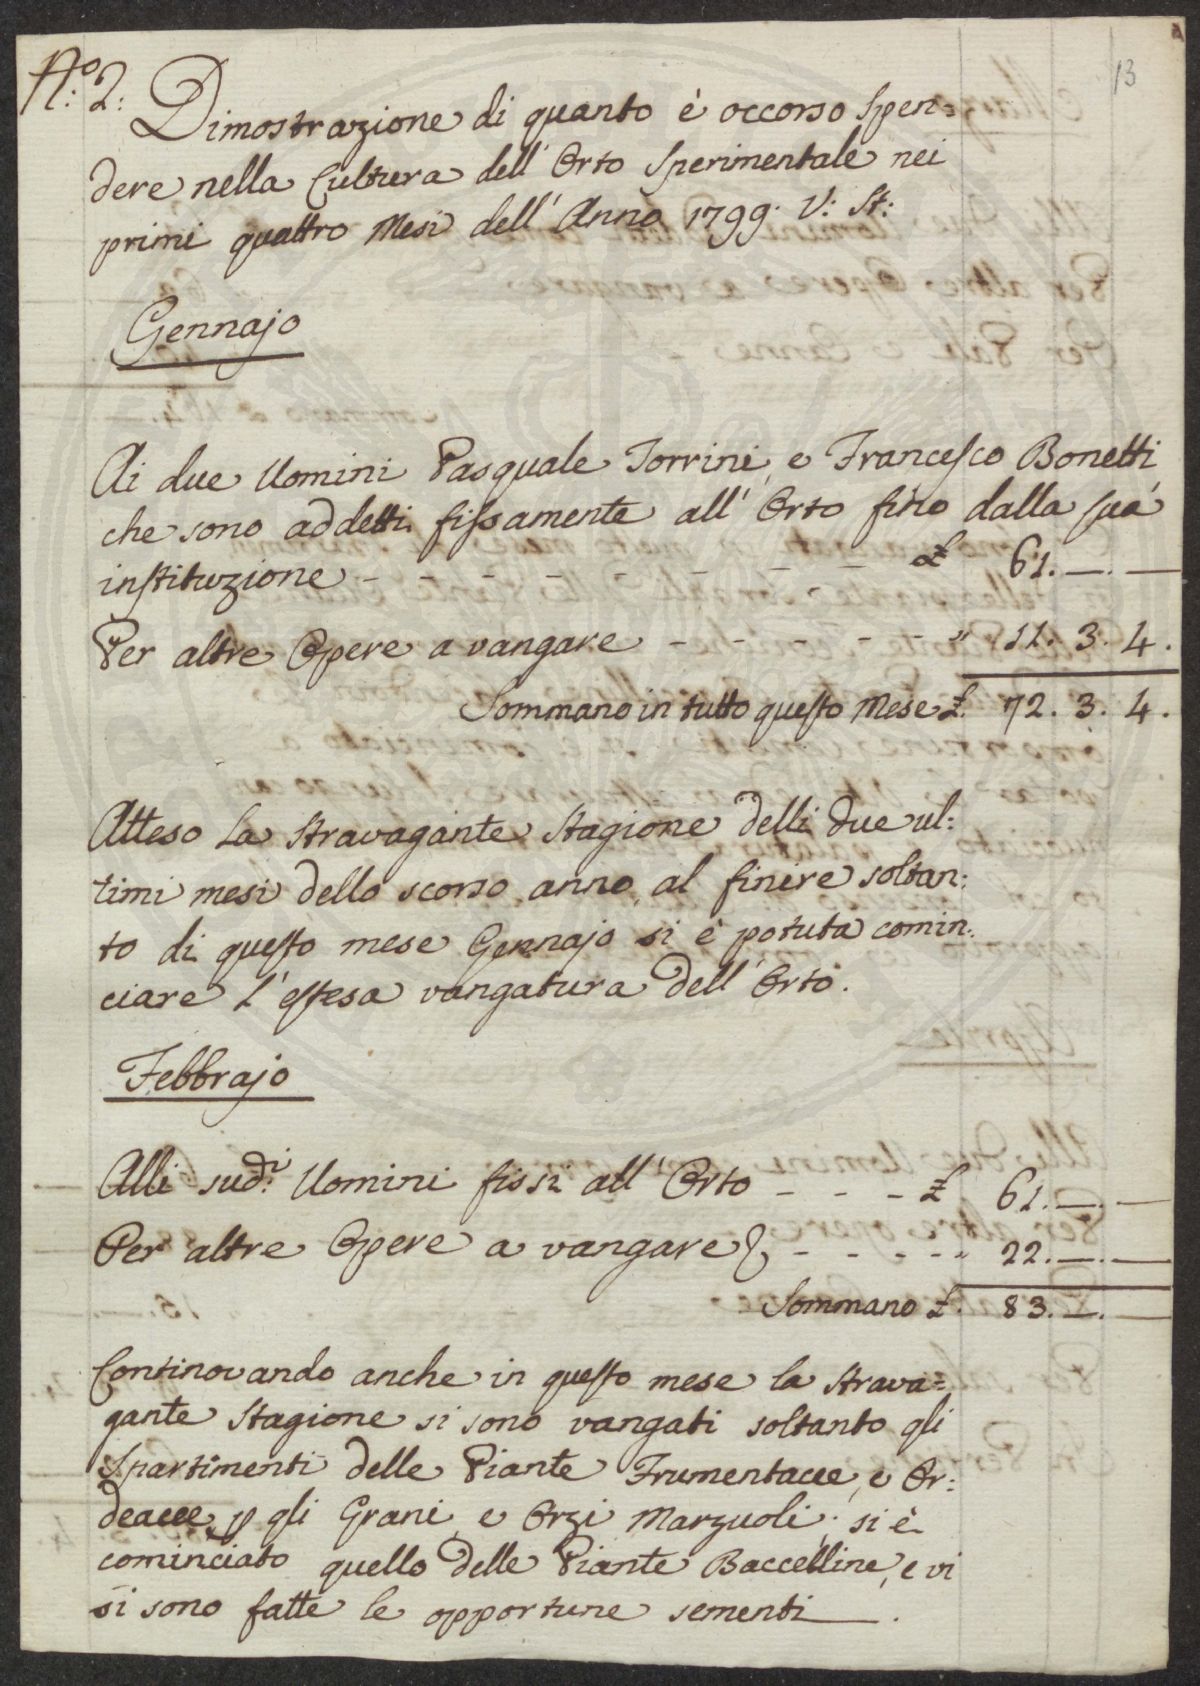 13
N.º 2: Dimostrazione di quanto è occorso Spen=
dere nella Cultura dell' Orto Sperimentale nei
primi quattro Mesi dell' Anno 1799. V: St:
Gennajo
Ai due Uomini Pasquale Torrini, e Francesco Bonetti
che sono addetti fissamente all' Orto fino dalla sua
instituzione - - - - - - - - £ 61. — . —
Per altre Opere a vangare - - - - - " 11. 3. 4.
Sommano in tutto questo Mese £. 72. 3. 4.
Atteso la stravagante Stagione delli due ul:
timi mesi dello scorso anno, al finire soltan:
to di questo mese Gennajo si è potuta comin:
ciare l'estesa vangatura dell' Orto.
Febbrajo
Alli sud.i Uomini fissi all' Orto - - - - £ 61. — . —
Per altre Opere a vangare - - - - - " 22. — . —
Sommano £. 83. — . —
Continovando anche in questo mese la strava=
gante Stagione si sono vangati soltanto gli
Spartimenti delle Piante Frumentacee, e Or:
deacee p gli Grani, e Orzi Marzuoli; si è
cominciato quello delle Piante Baccelline, e vi
si sono fatte le opportune sementi.